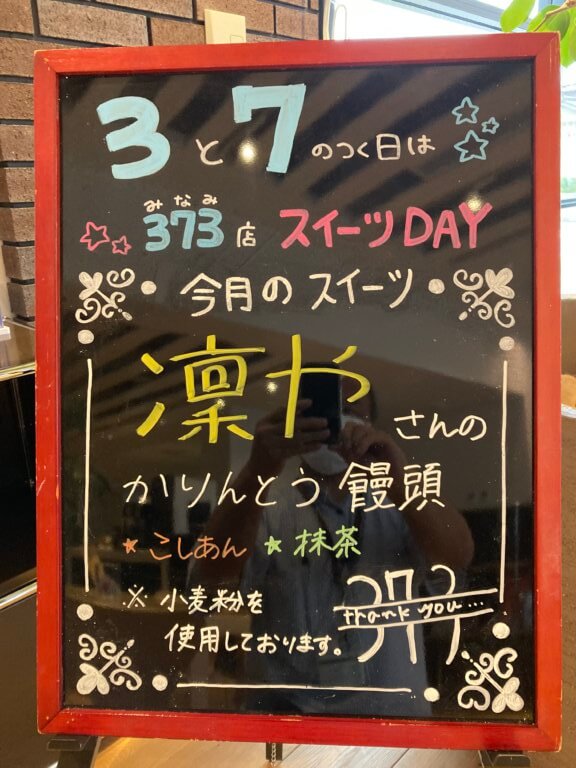 3と7のつく日は
みなみ
373店 スイーツDAY
今月のスイーツ
凛や さんの
かりんとう饅頭
★こしあん ★抹茶
※小麦粉を
使用しております。
373
thank you...